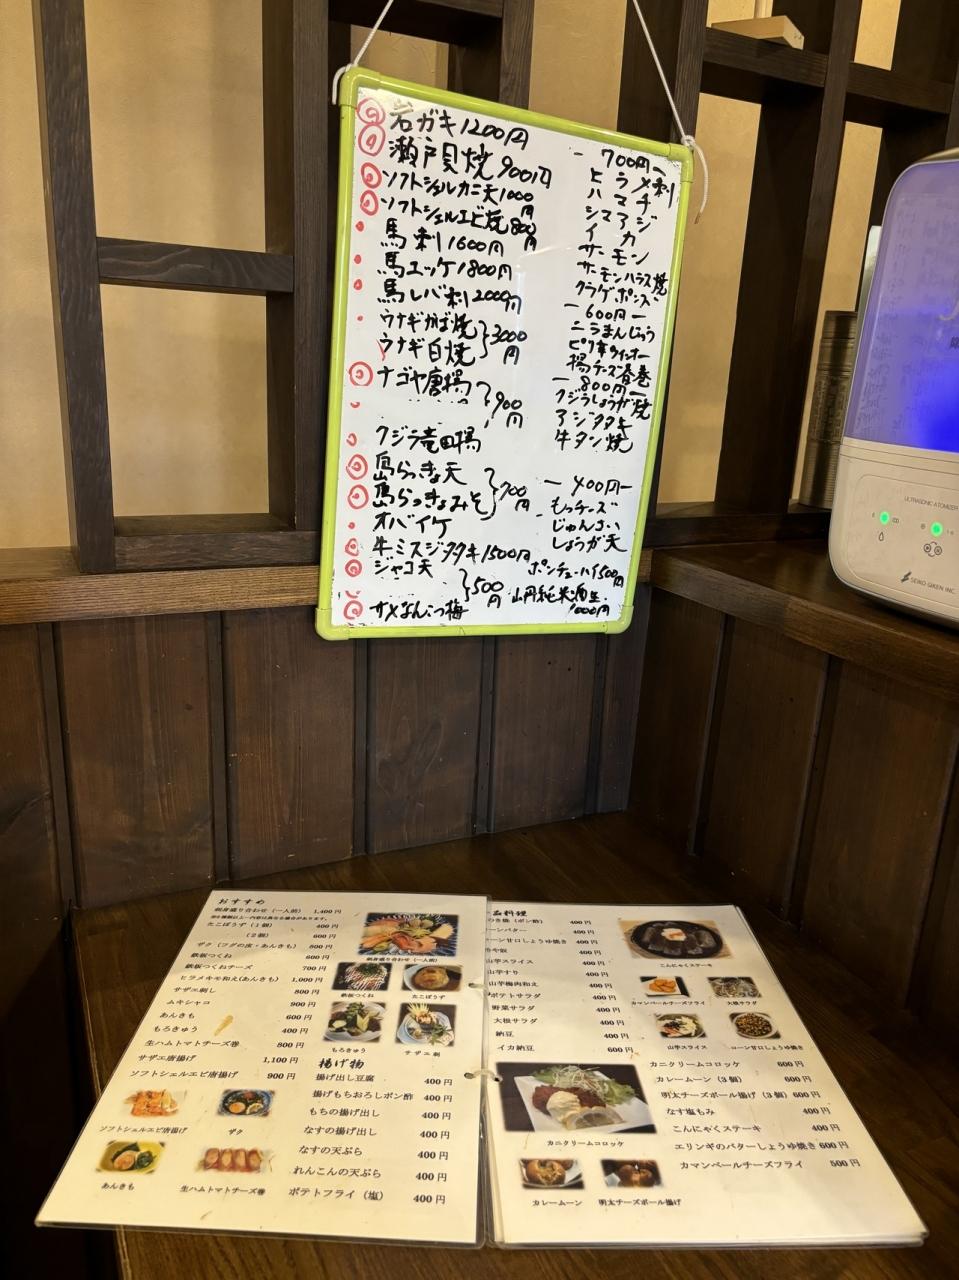 岩ガキ1200円
瀬戸貝焼900円
ソフトシェルカニ天1000円
ソフトシェルエビ焼800円
馬刺1600円
馬ユッケ1800円
馬レバ刺2000円
ウナギかば焼
ウナギ白焼
3000円
ナゴヤ唐揚
900円
クジラ竜田揚
島らっきょ天
島らっきょみそ
700円
オバイケ
牛ミスジタタキ1500円
ジャコ天
500円
サメなんこつ梅
ー700円ー
ヒラメ刺
ハマチ
シマアジ
イカ
サーモン
サーモンハラス焼
クラゲポンズ
ー600円ー
ニラまんじゅう
ピリ辛ウィンナー
揚チーズ春巻
ー800円ー
クジラしょうが焼
アジタタキ
牛タン焼
ー400円ー
もっチーズ
じゅんさい
しょうが天
ポンチューハイ500円
山丹純米酒生
1000円
ULTRASONIC ATOMIZER
SEIKO GIKEN INC
おすすめ
刺身盛り合わせ（一人前） 1,400円
たこぼうず（1個） 400円
（2個） 600円
ザク（フグの皮・あんきも） 800円
鉄板つくね 600円
鉄板つくねチーズ 700円
ヒラメキモ和え(あんきも) 1,000円
サザエ刺し 800円
ムキシャコ 900円
あんきも 600円
もろきゅう 400円
生ハムトマトチーズ巻 800円
サザエ唐揚げ 1,100円
ソフトシェルエビ唐揚げ 900円
刺身盛り合わせ（一人前）
鉄板つくね
たこぼうず
もろきゅう
サザエ刺
ソフトシェルエビ唐揚げ
ザク
あんきも
生ハムトマトチーズ巻
揚げ物
揚げ出し豆腐 400円
揚げもちおろしポン酢 400円
もちの揚げ出し 400円
なすの揚げ出し 400円
なすの天ぷら 400円
れんこんの天ぷら 400円
ポテトフライ（塩） 400円
一品料理
つき焼（ポン酢） 400円
コーンバター 400円
コーン甘口しょうゆ焼き 400円
400円
山芋スライス 400円
山芋すり 400円
山芋梅肉和え 400円
ポテトサラダ 400円
野菜サラダ 400円
大根サラダ 400円
納豆 400円
イカ納豆 600円
こんにゃくステーキ
カマンベールチーズフライ
大根サラダ
山芋スライス
コーン甘口しょうゆ焼き
カニクリームコロッケ
カレームーン
明太チーズボール揚げ
カニクリームコロッケ 600円
カレームーン（3個） 600円
明太チーズボール揚げ（3個） 600円
なす塩もみ 400円
こんにゃくステーキ 400円
エリンギのバターしょうゆ焼き 600円
カマンベールチーズフライ 500円